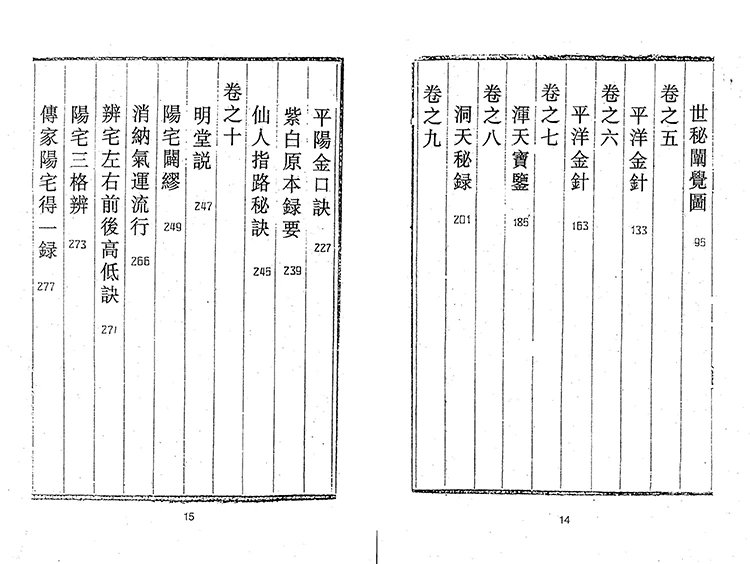 世秘闡覺圖 95
卷之五
平洋金針 133
卷之六
平洋金針 163
卷之七
渾天寶鑒 185
卷之八
洞天秘録 201
卷之九
14
平陽金口訣 227
紫白原本録要 239
仙人指路秘訣 245
卷之十
明堂説 247
陽宅闢繆 249
消納氣運流行 266
辨宅左右前後高低訣 271
陽宅三格辨 273
傳家陽宅得一録 277
15